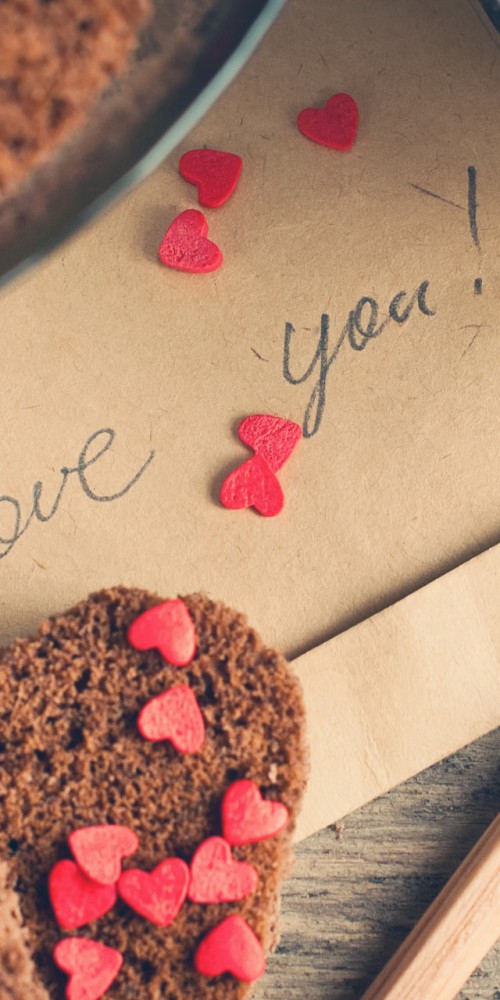 ove you!